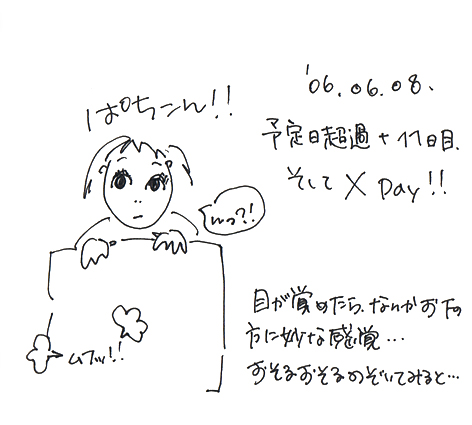 '06.06.08.
ぱちこん!!
予定日超過+11日目.
そして X Day!!
んっ?!
目が覚めたら、なんかお下の
方に妙な感覚…
おそるおそるのぞいてみると…
ムフッ!!